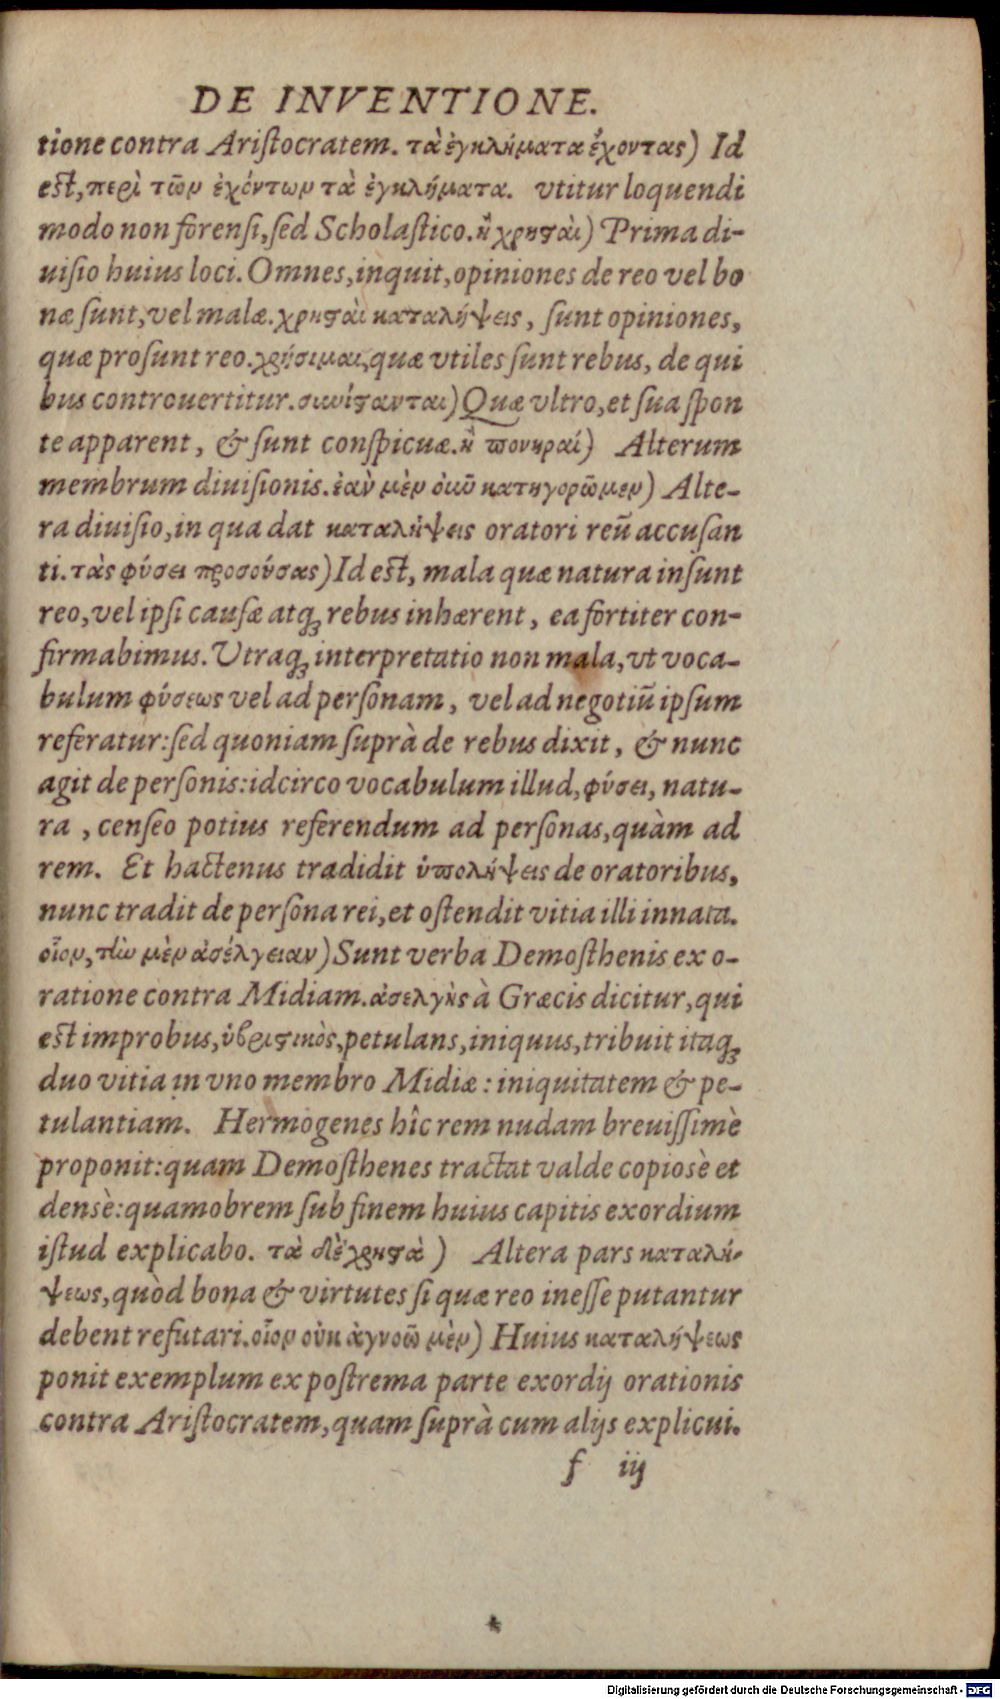 DE INVENTIONE.
tione contra Aristocratem. τὰ ἐγκλήματα ἔχοντας) Id
est, περὶ τῶν ἐχόντων τὰ ἐγκλήματα. vtitur loquendi
modo non forensi, sed Scholastico. ἢ χρησαὶ) Prima di-
uisio huius loci. Omnes, inquit, opiniones de reo vel bo
næ sunt, vel malæ. χρηςαὶ καταλήψεις, sunt opiniones,
quæ prosunt reo. χρήσιμαι, quæ vtiles sunt rebus, de qui
bus controuertitur. συνίςανται) Quæ vltro, et sua spon
te apparent, & sunt conspicuæ. ἢ πονηραί) Alterum
membrum diuisionis. ἐὰν μὲν οὖν κατηγορῶμεν) Alte-
ra diuisio, in qua dat καταλήψεις oratori reū accusan
ti. τὰς φύσει προσούσας) Id est, mala quæ natura insunt
reo, vel ipsi causæ atq; rebus inhærent, ea fortiter con-
firmabimus. Vtraq; interpretatio non mala, vt voca-
bulum φύσεως vel ad personam, vel ad negotiū ipsum
referatur: sed quoniam suprà de rebus dixit, & nunc
agit de personis: idcirco vocabulum illud, φύσει, natu-
ra, censeo potius referendum ad personas, quàm ad
rem. Et hactenus tradidit ὑπολήψεις de oratoribus,
nunc tradit de persona rei, et ostendit vitia illi innata.
οἷον, τὴν μὲν ἀσέλγειαν) Sunt verba Demosthenis ex o-
ratione contra Midiam. ἀσελγὴς à Græcis dicitur, qui
est improbus, ὑβριςικὸς, petulans, iniquus, tribuit itaq;
duo vitia in vno membro Midiæ: iniquitatem & pe-
tulantiam. Hermogenes hîc rem nudam breuissimè
proponit: quam Demosthenes tractat valde copiosè et
densè: quamobrem sub finem huius capitis exordium
istud explicabo. τὰ δὲ χρηςὰ) Altera pars καταλή-
ψεως, quòd bona & virtutes si quæ reo inesse putantur
debent refutari. οἷον οὐκ ἀγνοῶ μὲν) Huius καταλήψεως
ponit exemplum ex postrema parte exordij orationis
contra Aristocratem, quam suprà cum alijs explicui.
f iij
Digitalisierung gefördert durch die Deutsche Forschungsgemeinschaft - DFG